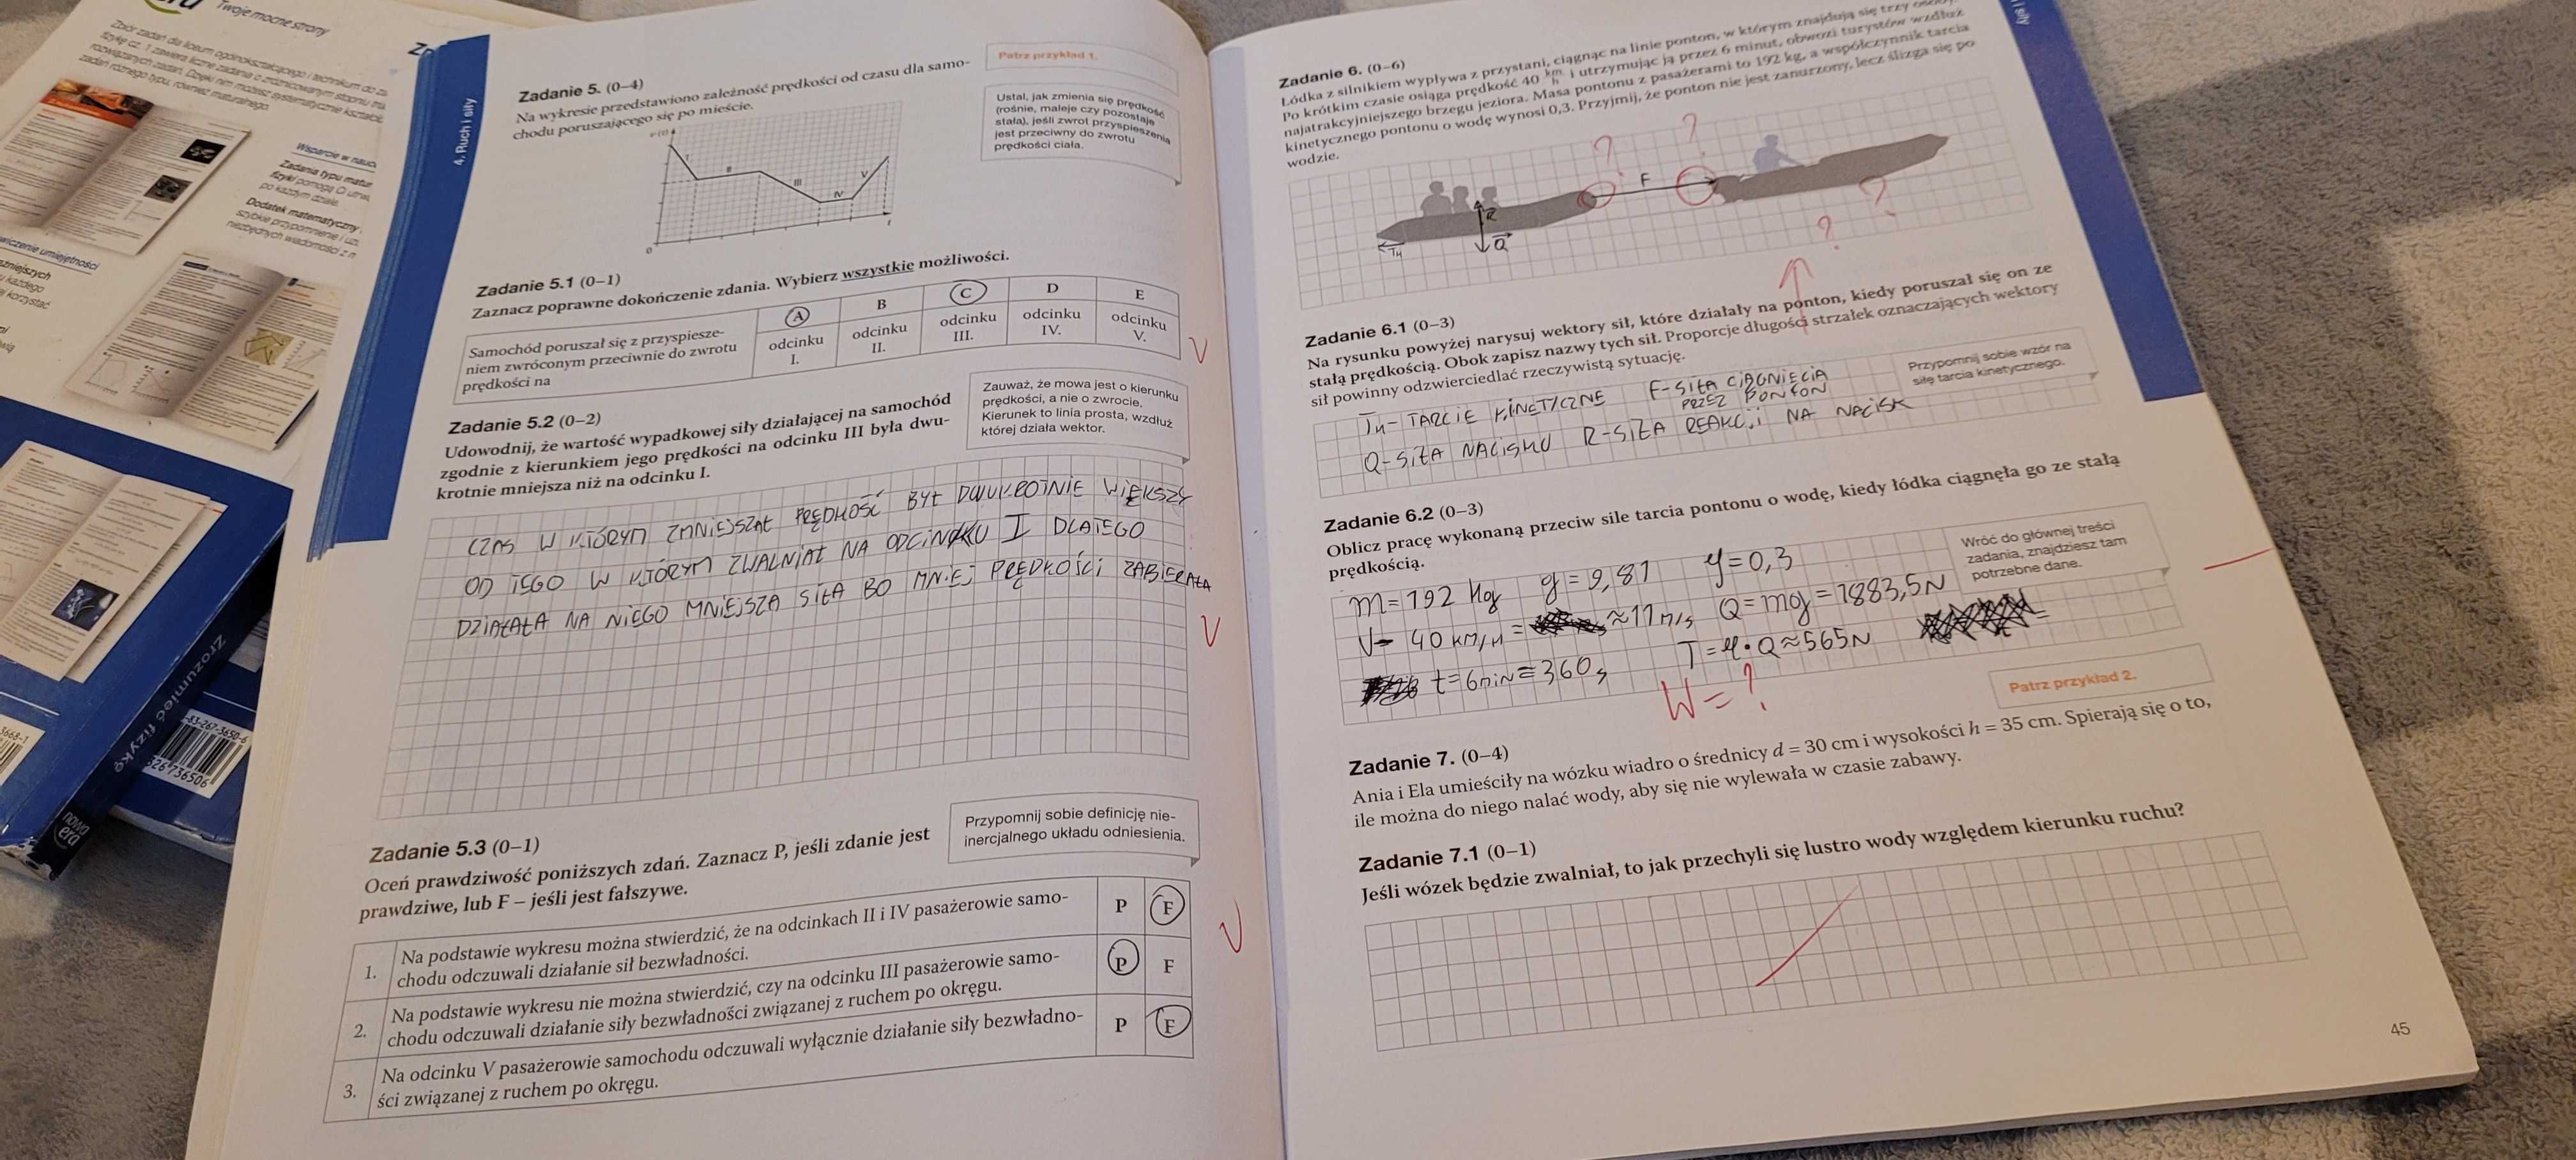 Twoje mocne strony
Zbiór zadań dla liceum ogólnokształcącego i technikum do
zadań różnego typu, również maturalnego.
Wsparcie w nauce
Zadania typu matur
fizyki pomogą Ci utrwa
po każdym dziale.
Dodatek matematyczny
szybkie przypomnienie i
niezbędnych wiadomości z
wiczenie umiejętności
Zrozumieć fizykę
nowa
era
83-267-3650-6
326736506
3668-1
4. Ruch i siły
Zadanie 5. (0–4)
Na wykresie przedstawiono zależność prędkości od czasu dla samo-
chodu poruszającego się po mieście.
I
II
III
IV
V
0
t
Patrz przykład 1.
Ustal, jak zmienia się prędkość
(rośnie, maleje czy pozostaje
stała), jeśli zwrot przyspieszenia
jest przeciwny do zwrotu
prędkości ciała.
Zadanie 5.1 (0–1)
Zaznacz poprawne dokończenie zdania. Wybierz wszystkie możliwości.
Samochód poruszał się z przyspiesze-
niem zwróconym przeciwnie do zwrotu
prędkości na
A
odcinku
I.
B
odcinku
II.
C
odcinku
III.
D
odcinku
IV.
E
odcinku
V.
Zadanie 5.2 (0–2)
Udowodnij, że wartość wypadkowej siły działającej na samochód
zgodnie z kierunkiem jego prędkości na odcinku III była dwu-
krotnie mniejsza niż na odcinku I.
Zauważ, że mowa jest o kierunku
prędkości, a nie o zwrocie.
Kierunek to linia prosta, wzdłuż
której działa wektor.
CZAS W KTÓRYM ZMNIEJSZAŁ PRĘDKOŚĆ BYŁ DWUKROTNIE WIĘKSZY
OD TEGO W KTÓRYM ZWALNIAŁ NA ODCINKU I DLATEGO
DZIAŁAŁA NA NIEGO MNIEJSZA SIŁA BO MNIEJ PRĘDKOŚCI ZABIERAŁA
Zadanie 5.3 (0–1)
Oceń prawdziwość poniższych zdań. Zaznacz P, jeśli zdanie jest
prawdziwe, lub F – jeśli jest fałszywe.
Przypomnij sobie definicję nie-
inercjalnego układu odniesienia.
1.
Na podstawie wykresu można stwierdzić, że na odcinkach II i IV pasażerowie samo-
chodu odczuwali działanie sił bezwładności.
P F
2.
Na podstawie wykresu nie można stwierdzić, czy na odcinku III pasażerowie samo-
chodu odczuwali działanie siły bezwładności związanej z ruchem po okręgu.
P F
3.
Na odcinku V pasażerowie samochodu odczuwali wyłącznie działanie siły bezwładno-
ści związanej z ruchem po okręgu.
P F
i siły
Zadanie 6. (0–6)
Łódka z silnikiem wypływa z przystani, ciągnąc na linie ponton, w którym znajdują się trzy osoby.
Po krótkim czasie osiąga prędkość 40 km/h i utrzymując ją przez 6 minut, obwozi turystów wzdłuż
najatrakcyjniejszego brzegu jeziora. Masa pontonu z pasażerami to 192 kg, a współczynnik tarcia
kinetycznego pontonu o wodę wynosi 0,3. Przyjmij, że ponton nie jest zanurzony, lecz ślizga się po
wodzie.
? ?
F
R
Q
TK
? ?
Zadanie 6.1 (0–3)
Na rysunku powyżej narysuj wektory sił, które działały na ponton, kiedy poruszał się on ze
stałą prędkością. Obok zapisz nazwy tych sił. Proporcje długości strzałek oznaczających wektory
sił powinny odzwierciedlać rzeczywistą sytuację.
Przypomnij sobie wzór na
siłę tarcia kinetycznego.
TK- TARCIE KINETYCZNE F-SIŁA CIĄGNIĘCIA
PRZEZ PONTON
Q-SIŁA NACISKU R-SIŁA REAKCJI NA NACISK
Zadanie 6.2 (0–3)
Oblicz pracę wykonaną przeciw sile tarcia pontonu o wodę, kiedy łódka ciągnęła go ze stałą
prędkością.
Wróć do głównej treści
zadania, znajdziesz tam
potrzebne dane.
m=192 kg g=9,81 μ=0,3
V= 40 km/h = ≈11 m/s Q=mg=1883,5N
t=6min=360s T=μ·Q≈565N
W=?
Patrz przykład 2.
Zadanie 7. (0–4)
Ania i Ela umieściły na wózku wiadro o średnicy d = 30 cm i wysokości h = 35 cm. Spierają się o to,
ile można do niego nalać wody, aby się nie wylewała w czasie zabawy.
Zadanie 7.1 (0–1)
Jeśli wózek będzie zwalniał, to jak przechyli się lustro wody względem kierunku ruchu?
45